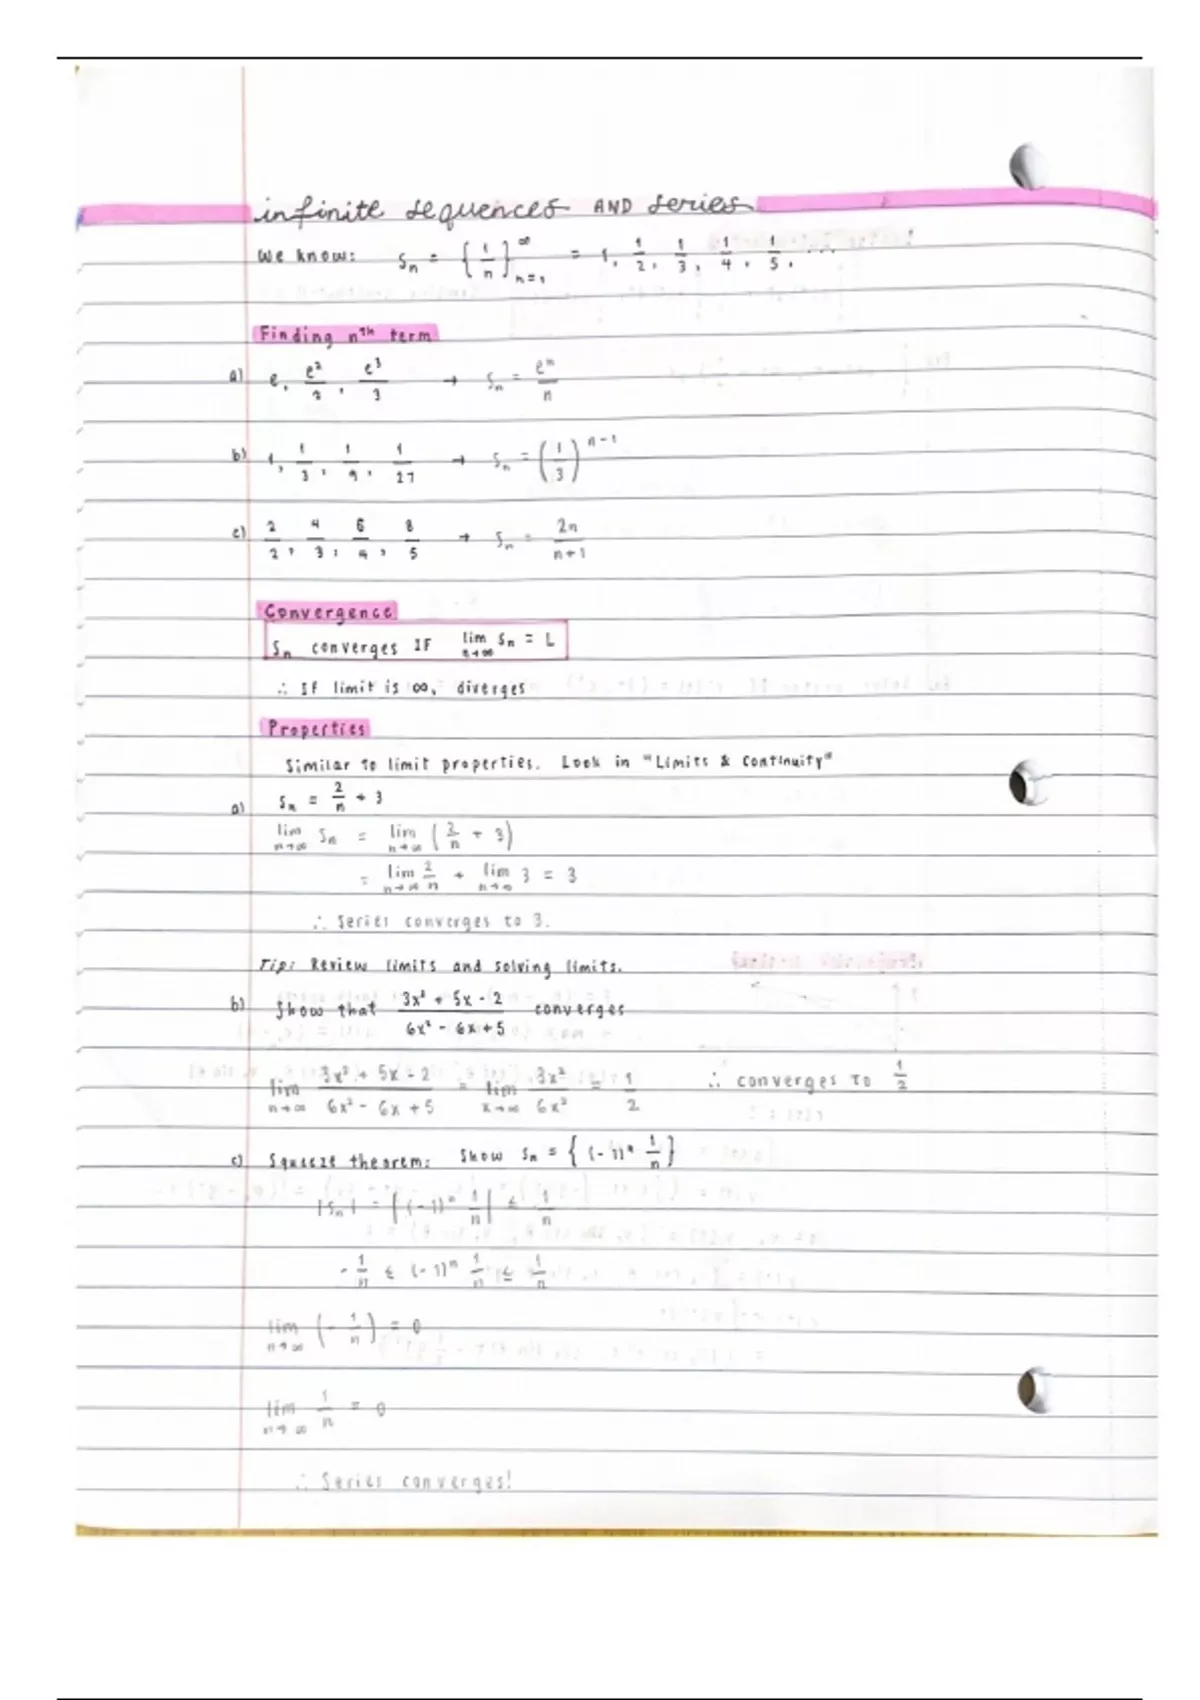 infinite sequences AND series
We know: Sn = { 1/n }∞ n=1 = 1, 1/2, 1/3, 1/4, 1/5, ...
Finding nth term
a) e, e²/2, e³/3 → Sn = eⁿ/n
b) 1, 1/3, 1/9, 1/27 → Sn = (1/3)ⁿ⁻¹
c) 2/2, 4/3, 6/4, 8/5 → Sn = 2n/n+1
Convergence
Sn converges IF lim n→∞ Sn = L
∴ If limit is ∞, diverges
Properties
Similar to limit properties. Look in "Limits & Continuity"
a) Sn = 2/n + 3
lim n→∞ Sn = lim n→∞ (2/n + 3)
= lim n→∞ 2/n + lim n→∞ 3 = 3
∴ Series converges to 3.
Tip: Review limits and solving limits.
b) Show that 3x² + 5x - 2 / 6x² - 6x + 5 converges
lim n→∞ 3x² + 5x - 2 / 6x² - 6x + 5 = lim x→∞ 3x²/6x² = 1/2 ∴ converges to 1/2
c) Squeeze theorem: Show Sn = { (-1)ⁿ 1/n }
|Sn| = |(-1)ⁿ 1/n| ≤ 1/n
-1/n ≤ (-1)ⁿ 1/n ≤ 1/n
lim n→∞ (-1/n) = 0
lim n→∞ 1/n = 0
∴ Series converges!